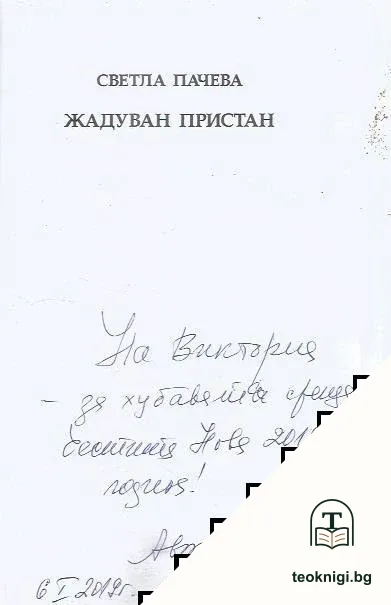 СВЕТЛА ПАЧЕВА
ЖАДУВАН ПРИСТАН
На Виктория
- за хубавата среща
Честита Нова 201
година!
Авт
6 I 2019г.
T
teoknigi.bg